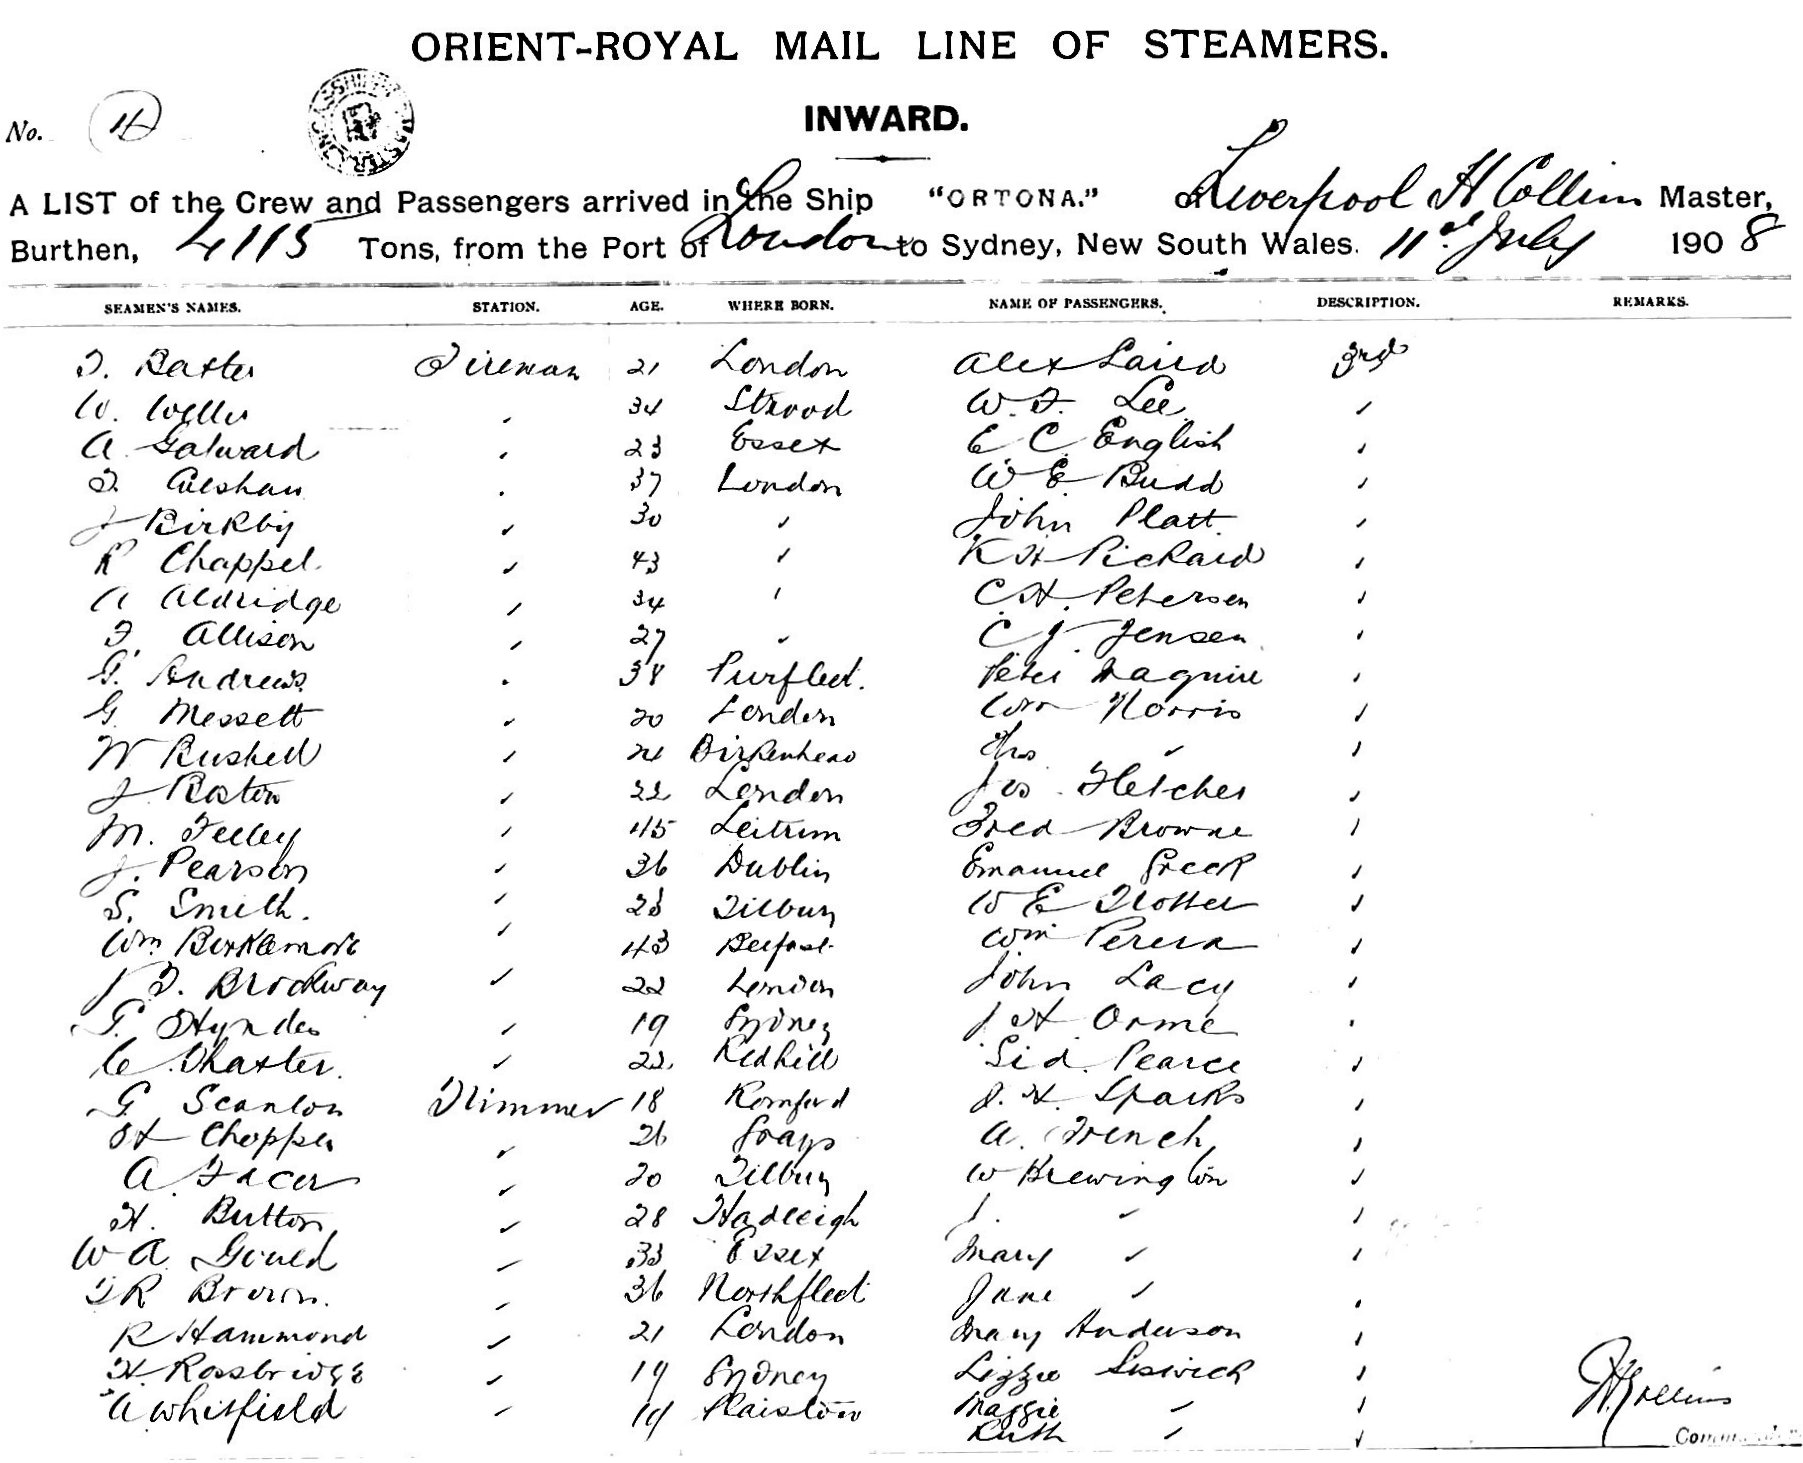 ORIENT-ROYAL MAIL LINE OF STEAMERS.
INWARD.
No.
A LIST of the Crew and Passengers arrived in the Ship "ORTONA." of Liverpool H Collins Master,
Burthen, 4115 Tons, from the Port of London to Sydney, New South Wales. 11th July 1908
SEAMEN'S NAMES. STATION. AGE. WHERE BORN. NAME OF PASSENGERS. DESCRIPTION. REMARKS.
Baxter Fireman 21 London Alex Laird 3rd
W. 34 Strood W. F. Lee
A Galward 23 Essex E C English
37 London W E Budd
J Birkby 30 John Platt
R Chappel 43 K H Pickard
A Aldridge 34 C. H. Petersen
F. Allison 27 C J. Jensen
G. Andrews 38 Purfleet. Peter Maguire
G. Messett 20 London Wm Norris
W Rushell Birkenhead Thos "
J Boston 22 London Jos. Fletcher
M. Feeley 45 Leitrim Fred Browne
J. Pearson 36 Dublin Emanuel Greek
S. Smith. 23 Tilbury W E Trotter
Wm 43 Belfast Wm Perera
J F. Brockway 22 London John Lacy
G. Hyndes 19 Sydney J H Orme
C. Thaxter. 22 Redhill Sid. Pearce
G Scanlon Trimmer 18 Romford J. H. Sparks
H Chopper 26 Grays A. French
A. Facer 20 Tilbury W Brewington
H. Button 28 Hadleigh J. "
W A Gould 33 Essex Mary "
T R Brown. 36 Northfleet Jane "
R Hammond 21 London Mary Anderson
H. Rossbridge 19 Sydney Lizzie
A Whitfield 19 Plaistow Maggie "
Ruth "
H Collins